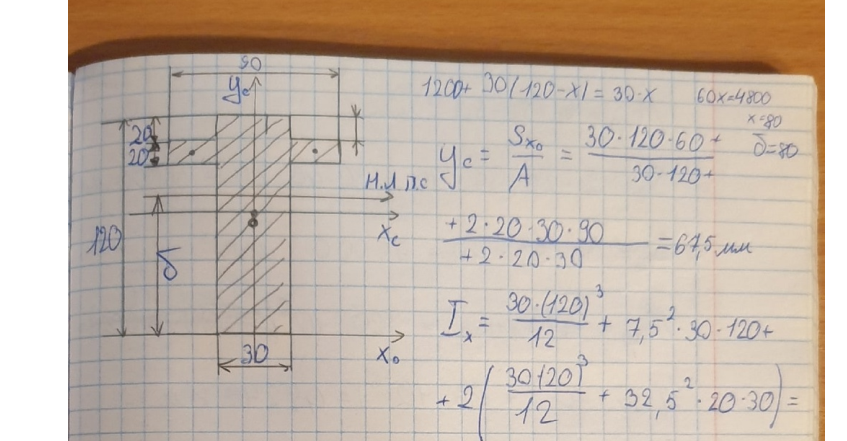 90
yc
20
20
120
δ
30
н.л п.с
xc
x0
1200+ 30(120-x)= 30·x 60x=4800
x=80
δ=80
yc = Sx0/A = (30·120·60+ / 30·120+
+2·20·30·90 / +2·20·30 = 67,5 мм
Ix = 30·(120)³/12 + 7,5²·30·120+
+2(30(20)³/12 + 32,5²·20·30)=